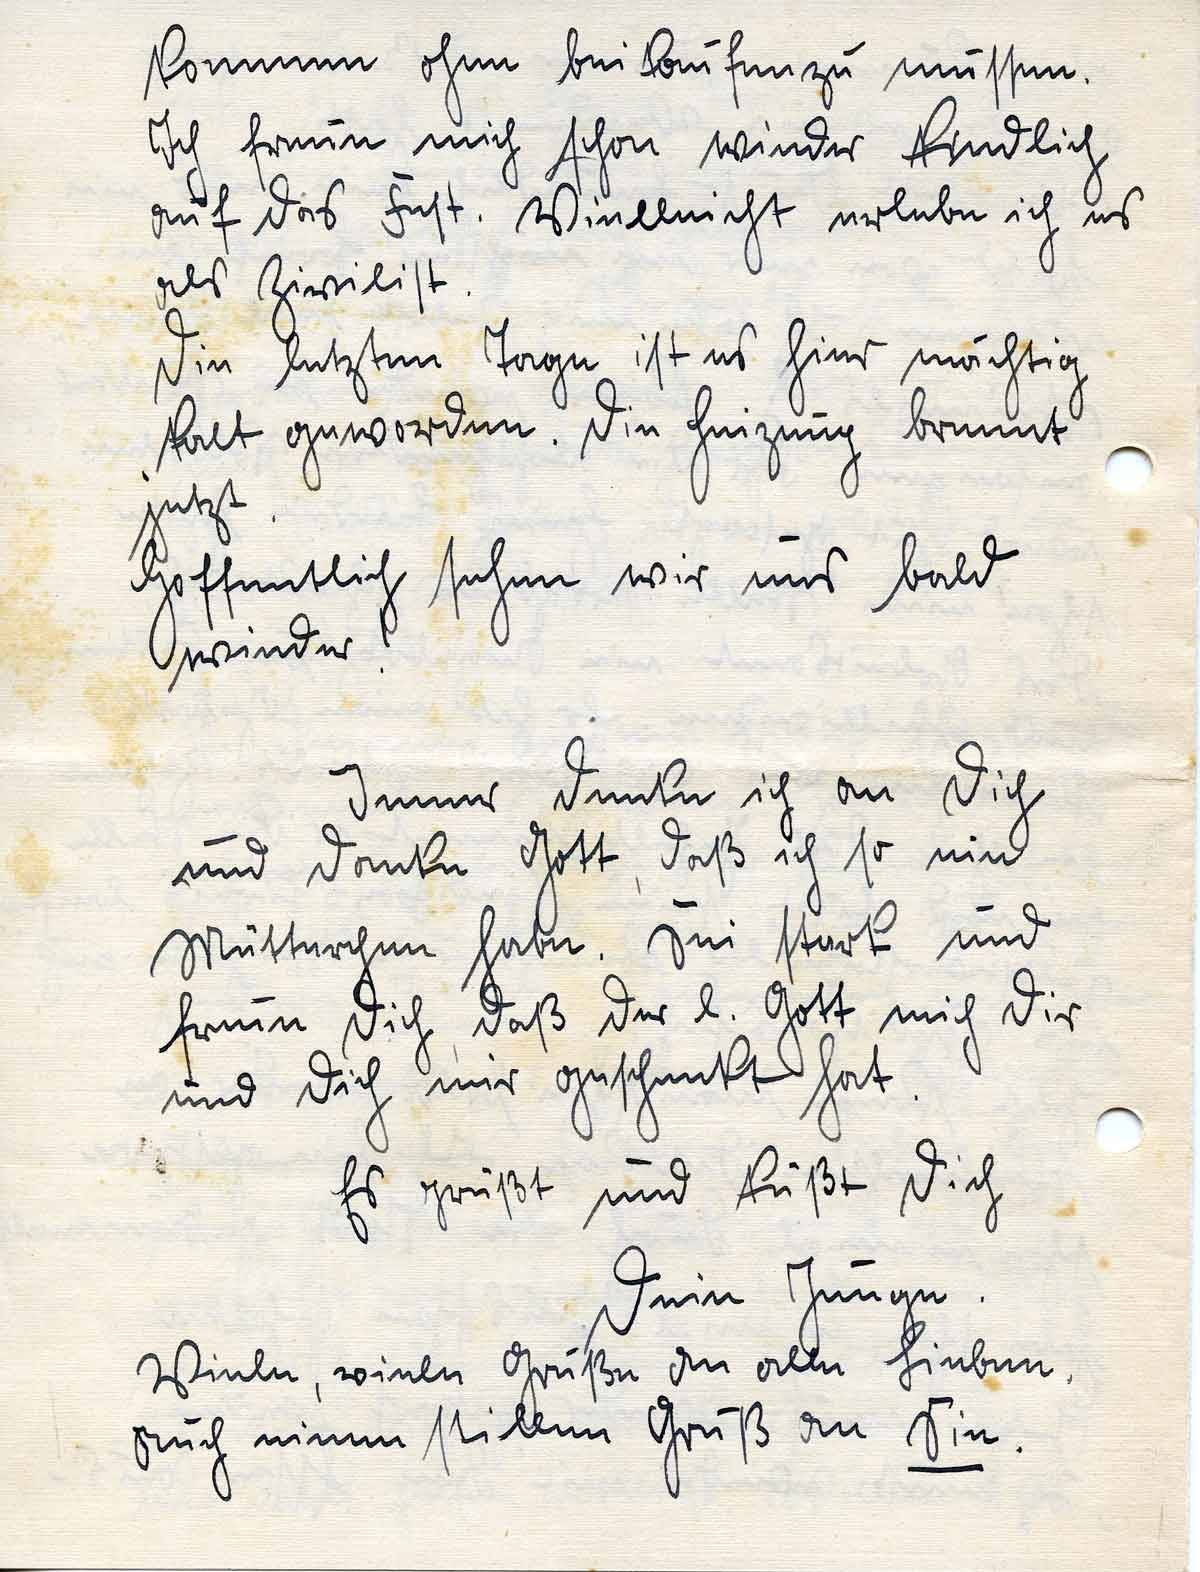 kommen ohne beikaufen zu müssen.
Ich freue mich schon wieder kindlich
auf das Fest. Vielleicht erlebe ich es
als Zivilist.
Die letzten Tage ist es hier mächtig
kalt geworden. Die Heizung brennt
jetzt.
Hoffentlich sehen wir uns bald
wieder!
Immer denke ich an Dich
und danke Gott, daß ich so ein
Mütterchen habe. Sei stark und
freue Dich, daß der l. Gott mich Dir
und Dich mir geschenkt hat.
Es grüßt und küßt Dich
Dein Junge.
Viele, viele Grüße an alle Lieben.
Auch einen stillen Gruß an Sie.